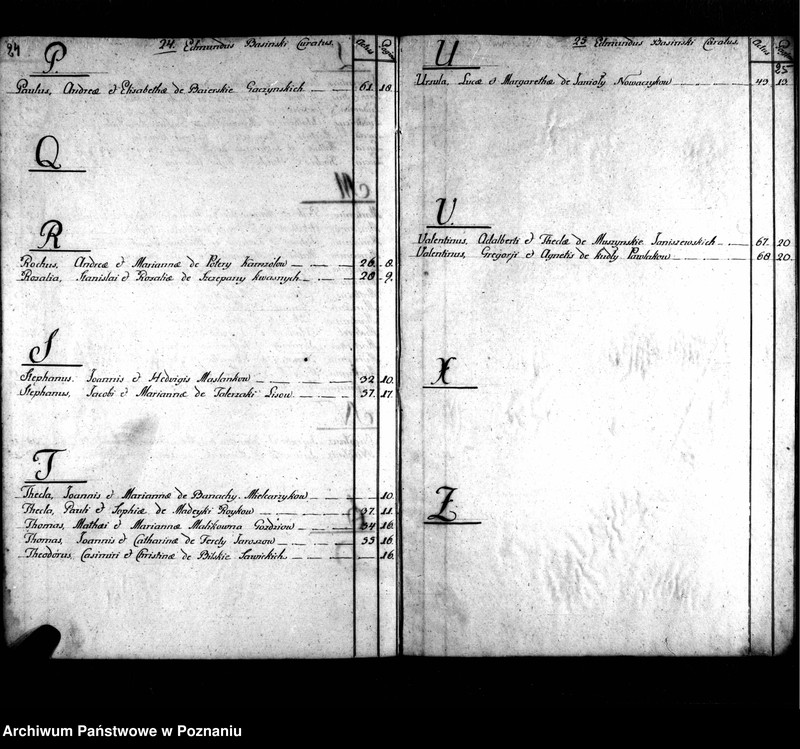 24
24. Edmundus Basinski Curatus.
Actus
Pagina
P.
Paulus, Andreæ et Elisabethæ de Baierskie Gaczynskich 61. 18.
Q
R
Rochus, Andreæ et Mariannæ de Potery Kamzolow 26. 8.
Rosalia, Stanislai et Rosaliæ de Szczepany Kwasnych 28. 9.
S
Stephanus, Joannis et Hedvigis Maslankow 32. 10.
Stephanus, Jacobi et Mariannæ de Talerzaki Lisow 57. 17.
T
Thecla, Joannis et Mariannæ de Banachy Mielcarzykow 10.
Thecla, Pauli et Sophiæ de Madeyki Roykow 37. 11.
Thomas, Mathæi et Mariannæ Mulikowna Gozdziow 54. 16.
Thomas, Joannis et Catharinæ de Ferety Jaroszow 55. 16.
Theodorus, Casimiri et Christinæ de Bilskie Sawickich 16.
25 Edmundus Basinski Curatus.
Actus
Pagina
25
U
Ursula, Lucæ et Margarethæ de Janioly Nowaczykow 43. 13.
V.
Valentinus, Adalberti et Theclæ de Muszynskie Janiszewskich 67. 20
Valentinus, Gregorji et Agnetis de Kudly Pawlakow 68 20.
X
Z
Archiwum Państwowe w Poznaniu